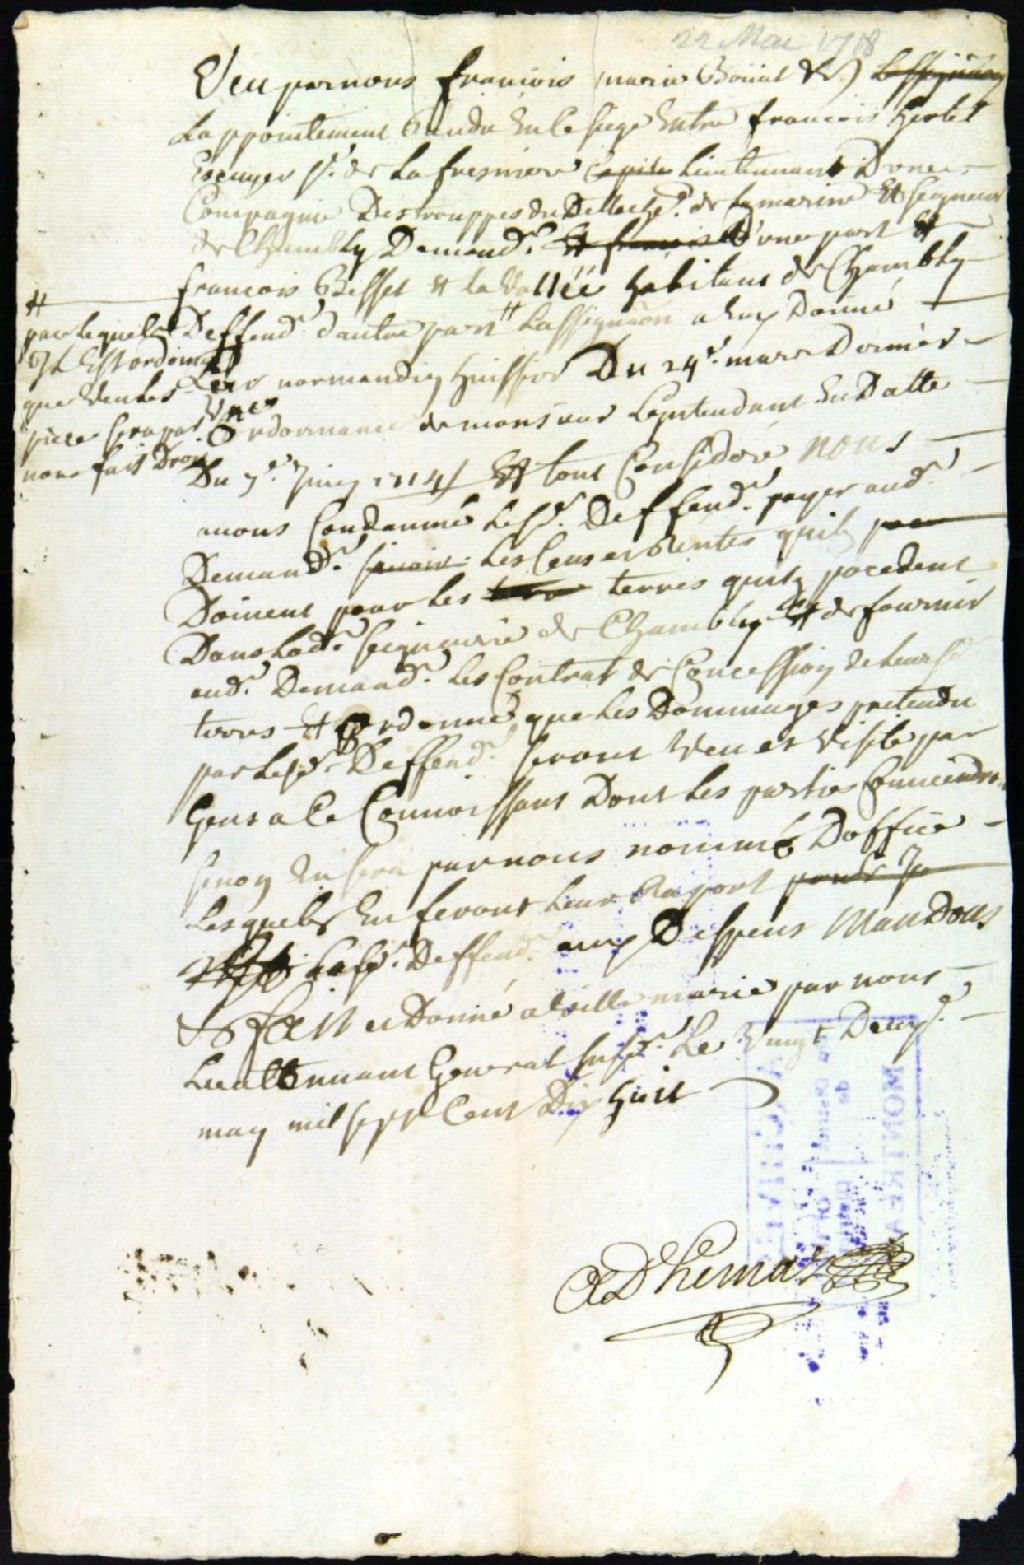 22 Mai 1718
Veu par nous francois marie Boüat &c
Lappointement Rendu En ce siege Entre francois hertel
Escuyer sr. de La fresniere Lieutennant Dune
Compagnie Des trouppes du Detachemt. de la marine Et seigneur
de Chambly Demandr. D'une part Et
francois Besset Et la Vallée habitant de Chambly
Deffendr. dautre part # Lassignaon a Eux Donné
par normandin huissier Du 24e. mars Dernier
Une Ordonnance de monsieur Lintendant En Datte
Du 7e. Juin 1714 Et tout Considéré nous
auons Condamné Lesd. Deffendr. payer aud.
Demandr. Les Cens et Rentes quils
Doiuent pour Les terres quils pocedent
Dans Lade. seigneurie de Chambly Et de fournir
aud. Demandr. Les Contrat de Concession de Leursd
terres Et Ordonné que Les Dommages pretendu
par Lesd. Deffendr. seront Veu et Visité par
Gens a Ce Connoissans Dont Les parties Conviendront
sinon En sera par nous nommé Doffice
Lesquels En feront Leur Raport
Lesd. Deffendr. aux Despens Mandons
&c fait et Donné a Villemarie par nous
Lieuttennant General susd. Le Vingt Deuxe.
may mil sept Cent Dix huit
#
par Lequel
Il Est ordonné
que Veu Les
piece sera par
nous fait Droit
ADhemar
ARCHIVES
de
MONTREAL